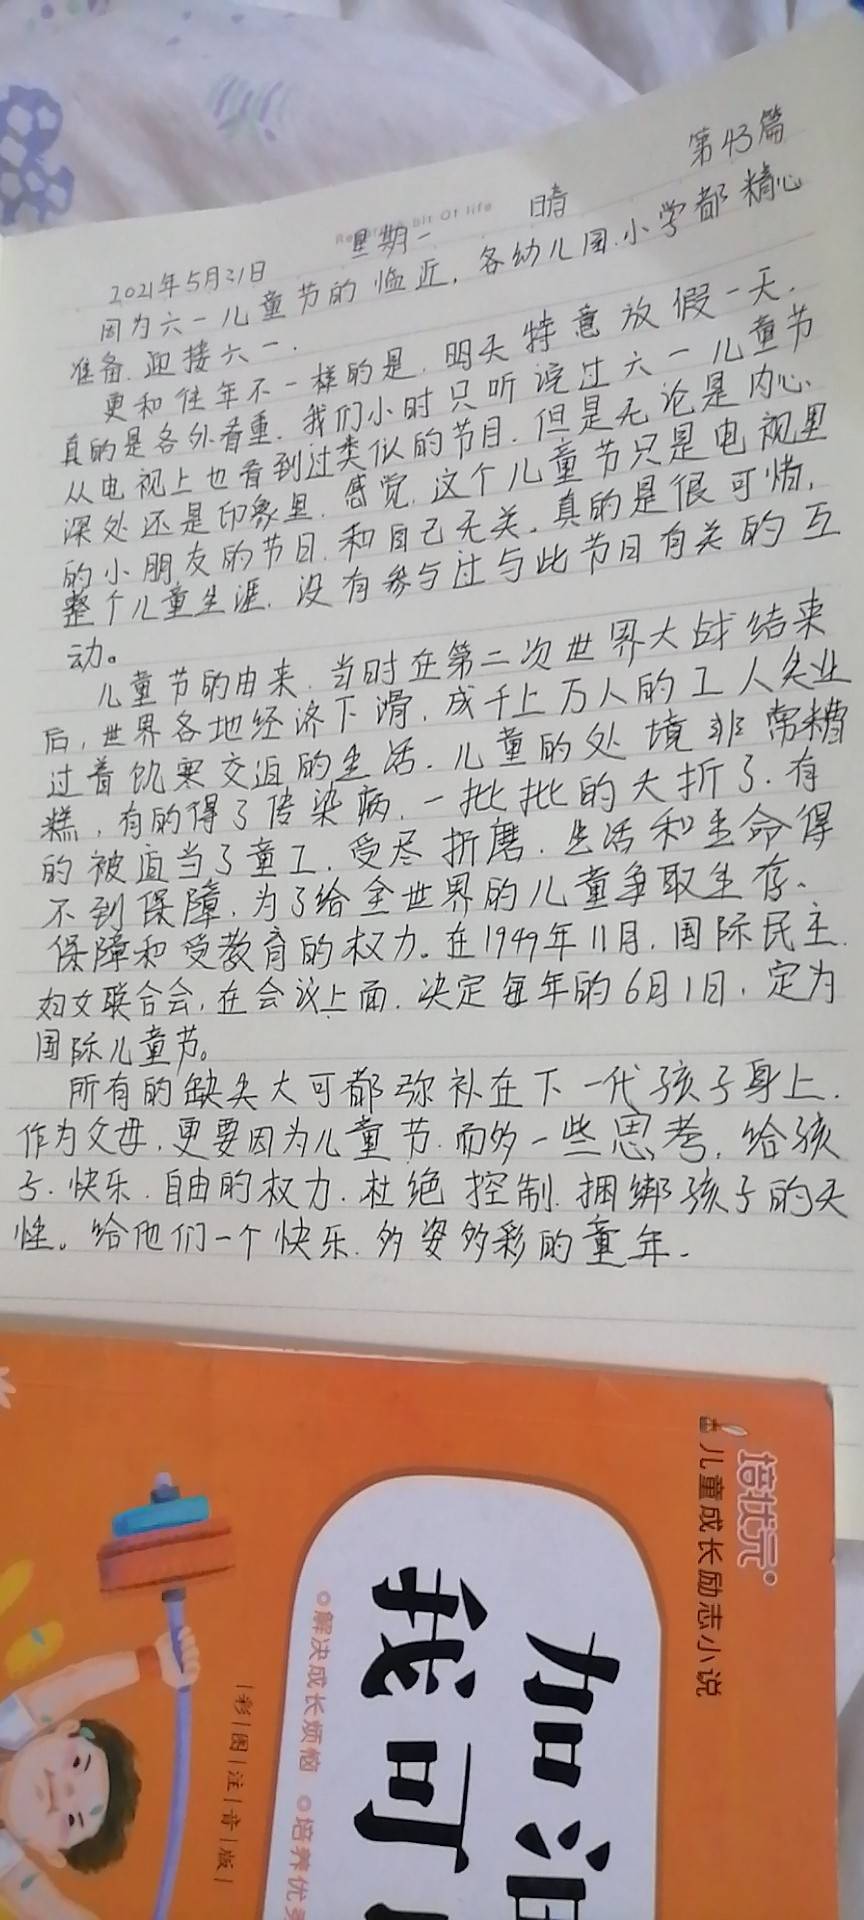 第43篇
2021年5月31日 星期一 晴
因为六一儿童节的临近,各幼儿园.小学都精心
准备.迎接六一.
更和往年不一样的是.明天特意放假一天.
真的是各外看重.我们小时只听说过六一儿童节
从电视上也看到过类似的节目.但是无论是内心
深处还是印象里.感觉.这个儿童节只是电视里
的小朋友的节日.和自己无关.真的是很可惜,
整个儿童生涯.没有参与过与此节日有关的互
动。
儿童节的由来.当时在第二次世界大战结束
后,世界各地经济下滑.成千上万人的工人失业
过着饥寒交迫的生活.儿童的处境非常糟
糕,有的得了传染病,一批批的夭折了.有
的被迫当了童工.受尽折磨.生活和生命得
不到保障.为了给全世界的儿童争取生存、
保障和受教育的权力.在1949年11月.国际民主
妇女联合会,在会议上面.决定每年的6月1日.定为
国际儿童节。
所有的缺失大可都弥补在下一代孩子身上.
作为父母.更要因为儿童节.而多一些思考.给孩
子.快乐.自由的权力.杜绝控制.捆绑孩子的天
性。给他们一个快乐.多姿多彩的童年.
培状元
儿童成长励志小说
加油
我可
解决成长烦恼 培养优秀
彩图注音版